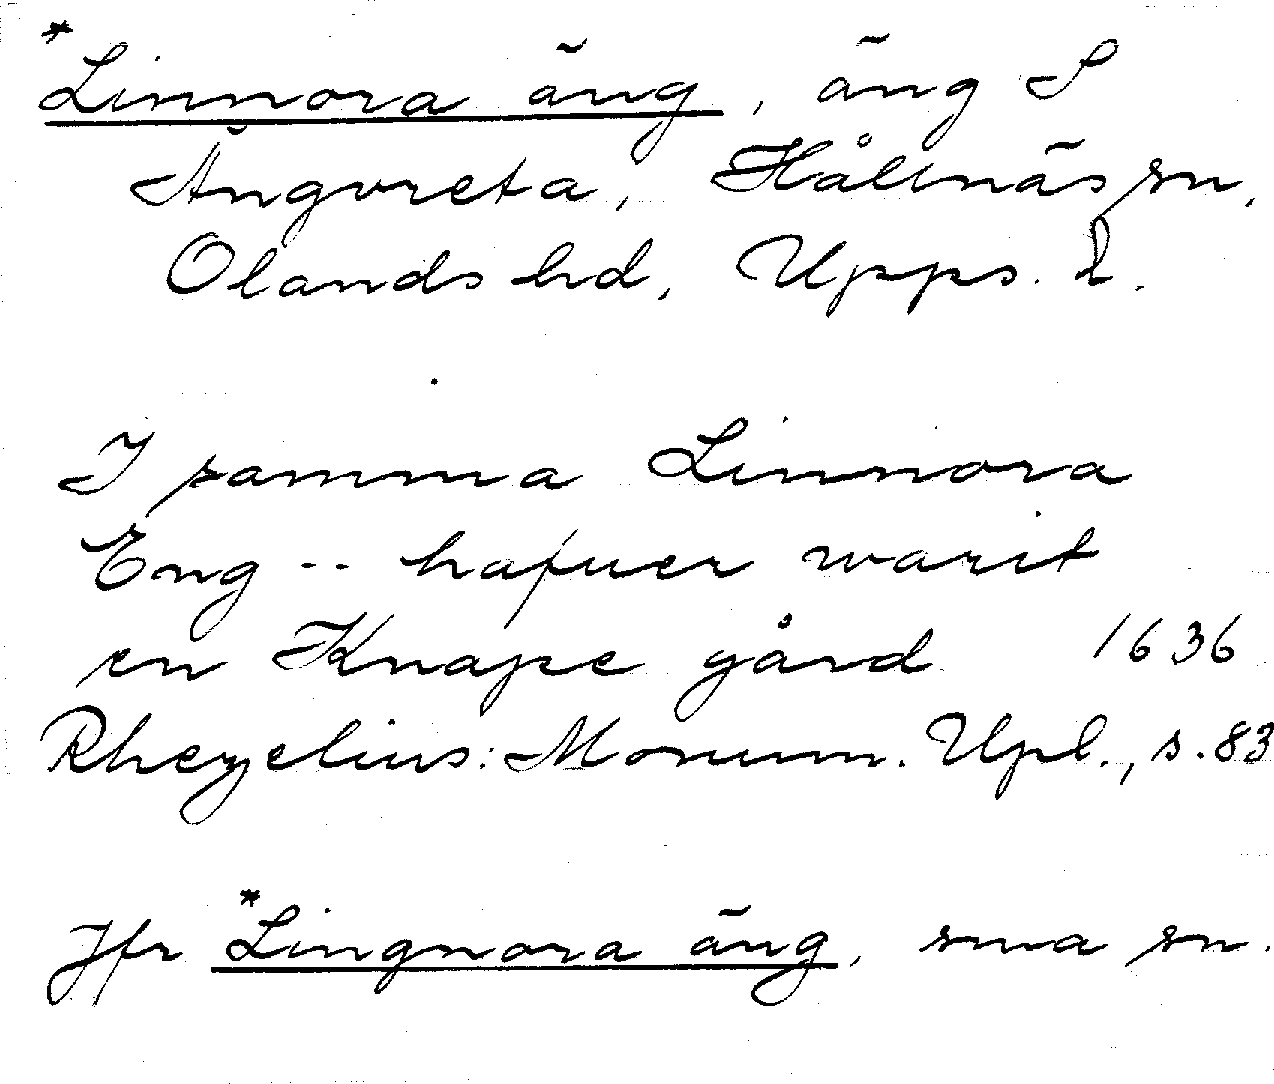 *Linnora äng, äng S
Ängvreta, Hållnäs sn,
Olands hd, Upps. l.
I samma Linnora
Eng -- hafuer warit
en Knape gård 1636
Rhezelius: Monum. Upl., s. 83
Jfr *Lingnora äng, sma sn.